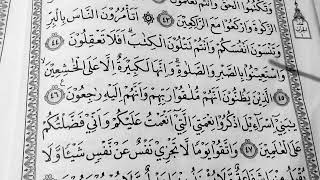 وَتَكْتُمُوا الْحَقَّ وَأَنْتُمْ تَعْلَمُونَ
الزَّكٰوةَ وَارْكَعُوا مَعَ الرَّاكِعِينَ ﴿٤٣﴾ اَتَأْمُرُونَ النَّاسَ بِالْبِرِّ
وَتَنْسَوْنَ اَنْفُسَكُمْ وَاَنْتُمْ تَتْلُونَ الْكِتَابَ اَفَلَا تَعْقِلُونَ ﴿٤٤﴾
وَاسْتَعِينُوا بِالصَّبْرِ وَالصَّلٰوةِ وَاِنَّهَا لَكَبِيرَةٌ اِلَّا عَلَى الْخَاشِعِينَ ﴿٤٥﴾
الَّذِينَ يَظُنُّونَ اَنَّهُمْ مُلَاقُوا رَبِّهِمْ وَاَنَّهُمْ اِلَيْهِ رَاجِعُونَ ﴿٤٦﴾
يَا بَنِي اِسْرَاءِيلَ اذْكُرُوا نِعْمَتِيَ الَّتِي اَنْعَمْتُ عَلَيْكُمْ وَاَنِّي فَضَّلْتُكُمْ
عَلَى الْعَالَمِينَ ﴿٤٧﴾ وَاتَّقُوا يَوْمًا لَا تَجْزِي نَفْسٌ عَنْ نَفْسٍ شَيْئًا وَلَا